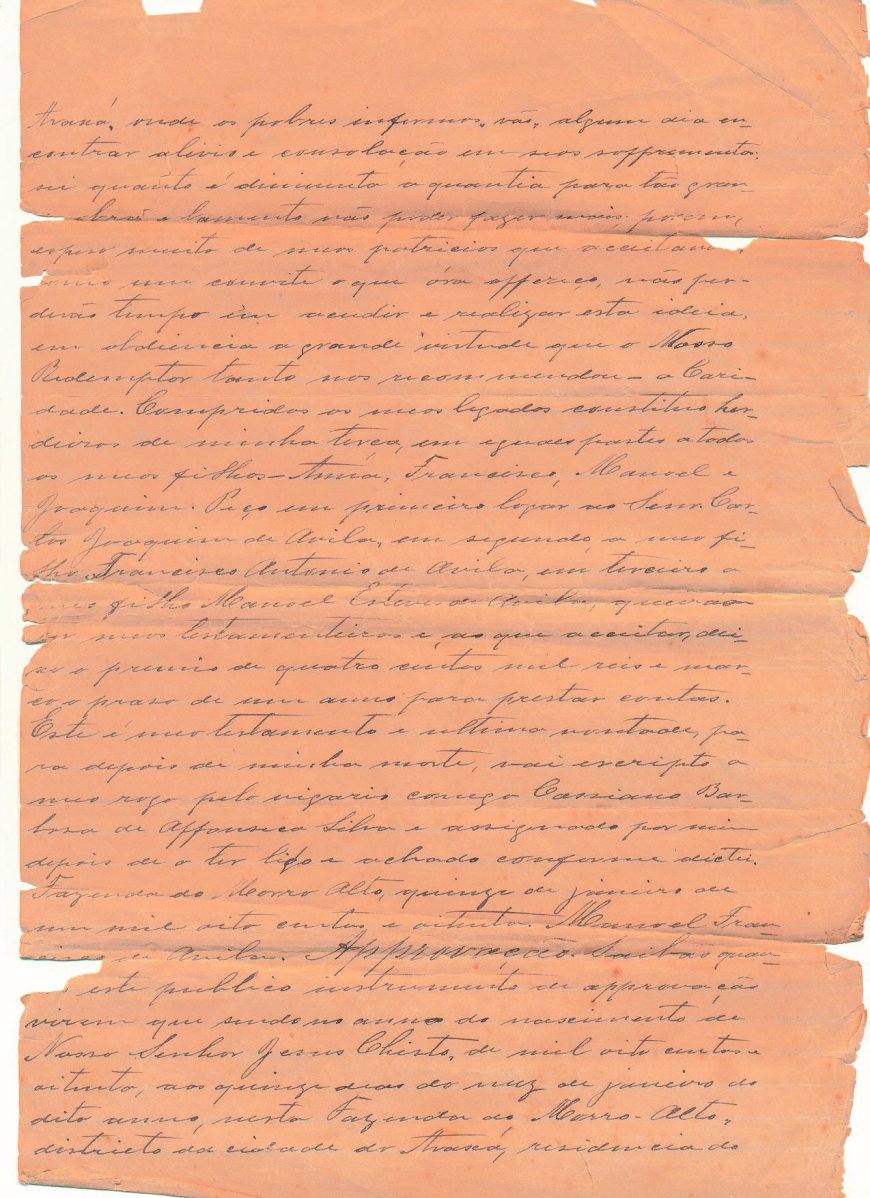 Araxá, onde os pobres infermos, vão, algum dia en-
contrar alivio e consolação em seos soffrimentos.
sei quanto é diminuta a quantia para tão gran-
obra e lamento não poder fazer mais, porem,
espero muito de meos patricios que acceitando,
como um convite o que óra offereço, não per-
derão tempo em acudir e realizar esta ideia,
em obdiencia a grande virtude que o Nosso
Redemptor tanto nos recommendou – a Cari-
dade. Compridos os meos legados constituo her-
deiros de minha terça, em eguaes partes a todos
os meos filhos – Anna, Francisco, Manoel e
Joaquim. Peço em primeiro logar ao Senr. Car-
los Joaquim de Avila, em segundo, a meo fi-
lho, Francisco Antonio de Avila, em terceiro a
meo filho Manoel Esteves de Avila, queirão
ser meos testamenteiros e, ao que acceitar, dei-
xo o premio de quatro centos mil reis e mar-
co o praso de um anno para prestar contas.
Este é meo testamento e ultima vontade, pa-
ra depois de minha morte, vai escripto a
meo rogo pelo vigario conego Cassiano Bar-
bosa de Affonseca Silva e assignado por mim
depois de o ter lido e achado conforme dictei.
Fazenda do Morro Alto, quinze de janeiro de
um mil oito centos e oitenta. Manoel Fran-
cisco de Avila. Approvação. Saibão quan-
este publico instrumento de approvação
virem que sendo no anno do nascimento de
Nosso Senhor Jesus Christo, de mil oito centos e
oitenta, aos quinze dias do mez de janeiro do
dito anno, nesta Fazenda do Morro-Alto,
districto da cidade do Araxá, residencia do